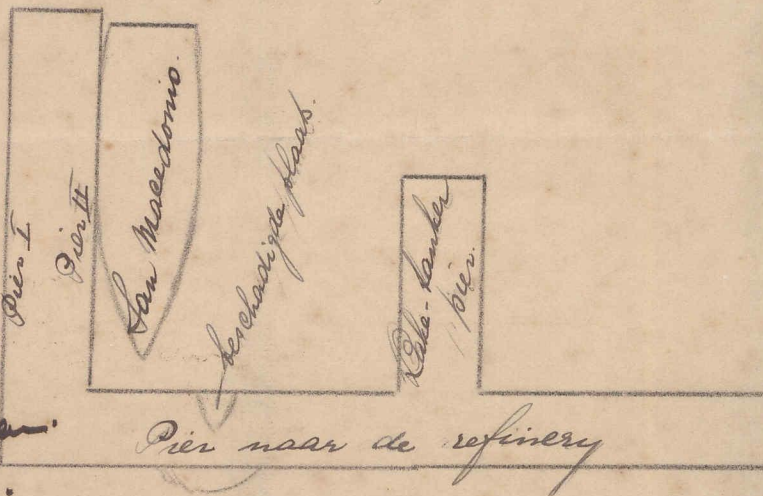 Pier I
Pier II
San Macedonio.
beschadigde plaat.
Lake-tanker
pier.
Pier naar de refinery